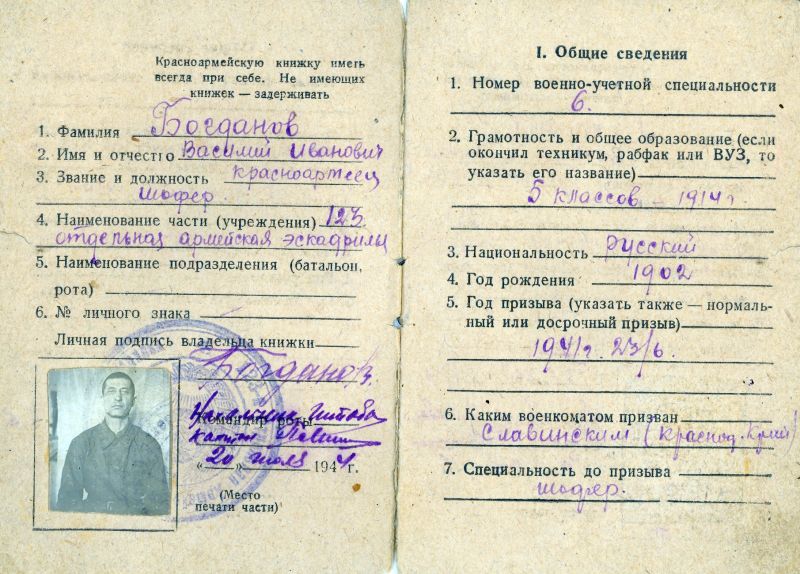 Красноармейскую книжку иметь
всегда при себе. Не имеющих
книжек — задерживать
1. Фамилия Богданов
2. Имя и отчество Василий Иванович
3. Звание и должность красноармеец
шофер.
4. Наименование части (учреждения) 123
отдельная армейская эскадрилья
5. Наименование подразделения (батальон,
рота)
6. № личного знака —
Личная подпись владельца книжки
Богданов.
Начальник штаба
Командир роты
капитан
„20“ июля 1944 г.
(Место
печати части)
I. Общие сведения
1. Номер военно-учетной специальности
6.
2. Грамотность и общее образование (если
окончил техникум, рабфак или ВУЗ, то
указать его название)
5 классов — 1914 г
3. Национальность русский
4. Год рождения 1902
5. Год призыва (указать также — нормаль-
ный или досрочный призыв)
1941 г. 23/6.
6. Каким военкоматом призван
Славинским (Краснод. Край)
7. Специальность до призыва
шофер.